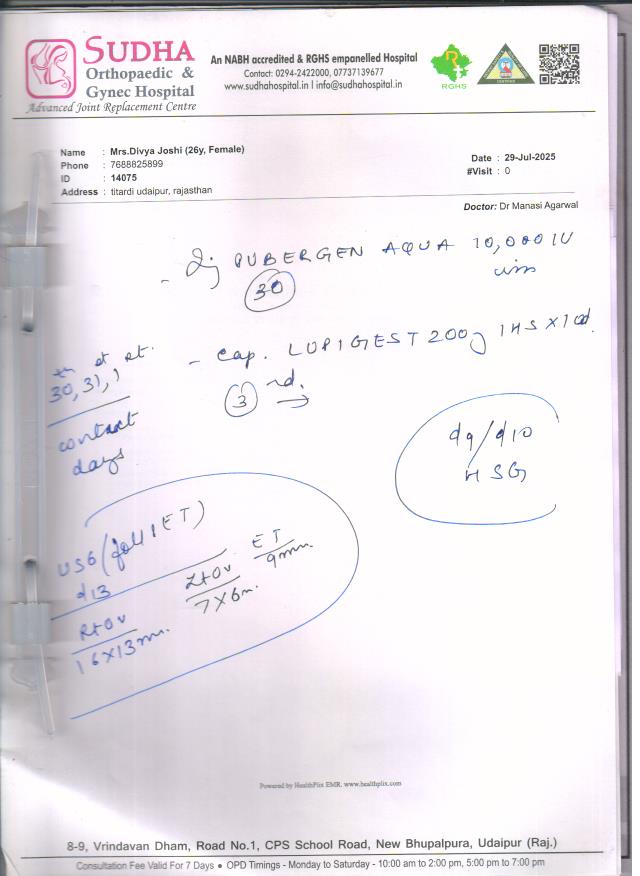 SUDHA
Orthopaedic &
Gynec Hospital
Advanced Joint Replacement Centre
An NABH accredited & RGHS empanelled Hospital
Contact: 0294-2422000, 07737139677
www.sudhahospital.in | info@sudhahospital.in
RGHS
Name : Mrs.Divya Joshi (26y, Female)
Phone : 7688825899
ID : 14075
Address : titardi udaipur, rajasthan
Date : 29-Jul-2025
#Visit : 0
Doctor: Dr Manasi Agarwal
- Inj PUBERGEN AQUA 10,000 IU
30
- Cap. LUPIGEST 200g 1 HS X 10d.
3rd. →
30th, 31st, 1st.
contact
days
d9/d10
HSG
USG (foll & ET)
d13
Rt Ov
16X13mm.
Lt Ov
7X6m.
ET
9mm.
Powered by HealthPlix EMR. www.healthplix.com
8-9, Vrindavan Dham, Road No.1, CPS School Road, New Bhupalpura, Udaipur (Raj.)
Consultation Fee Valid For 7 Days ● OPD Timings - Monday to Saturday - 10:00 am to 2:00 pm, 5:00 pm to 7:00 pm